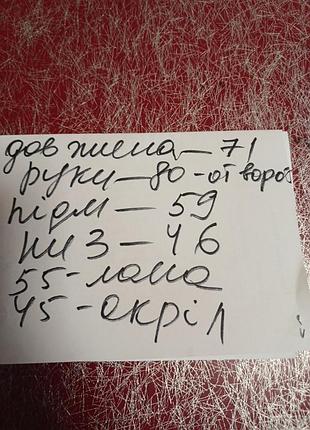 довжина - 71
руки - 80 - от ворот
підм - 59
низ - 46
55 - лана
45 - акріл